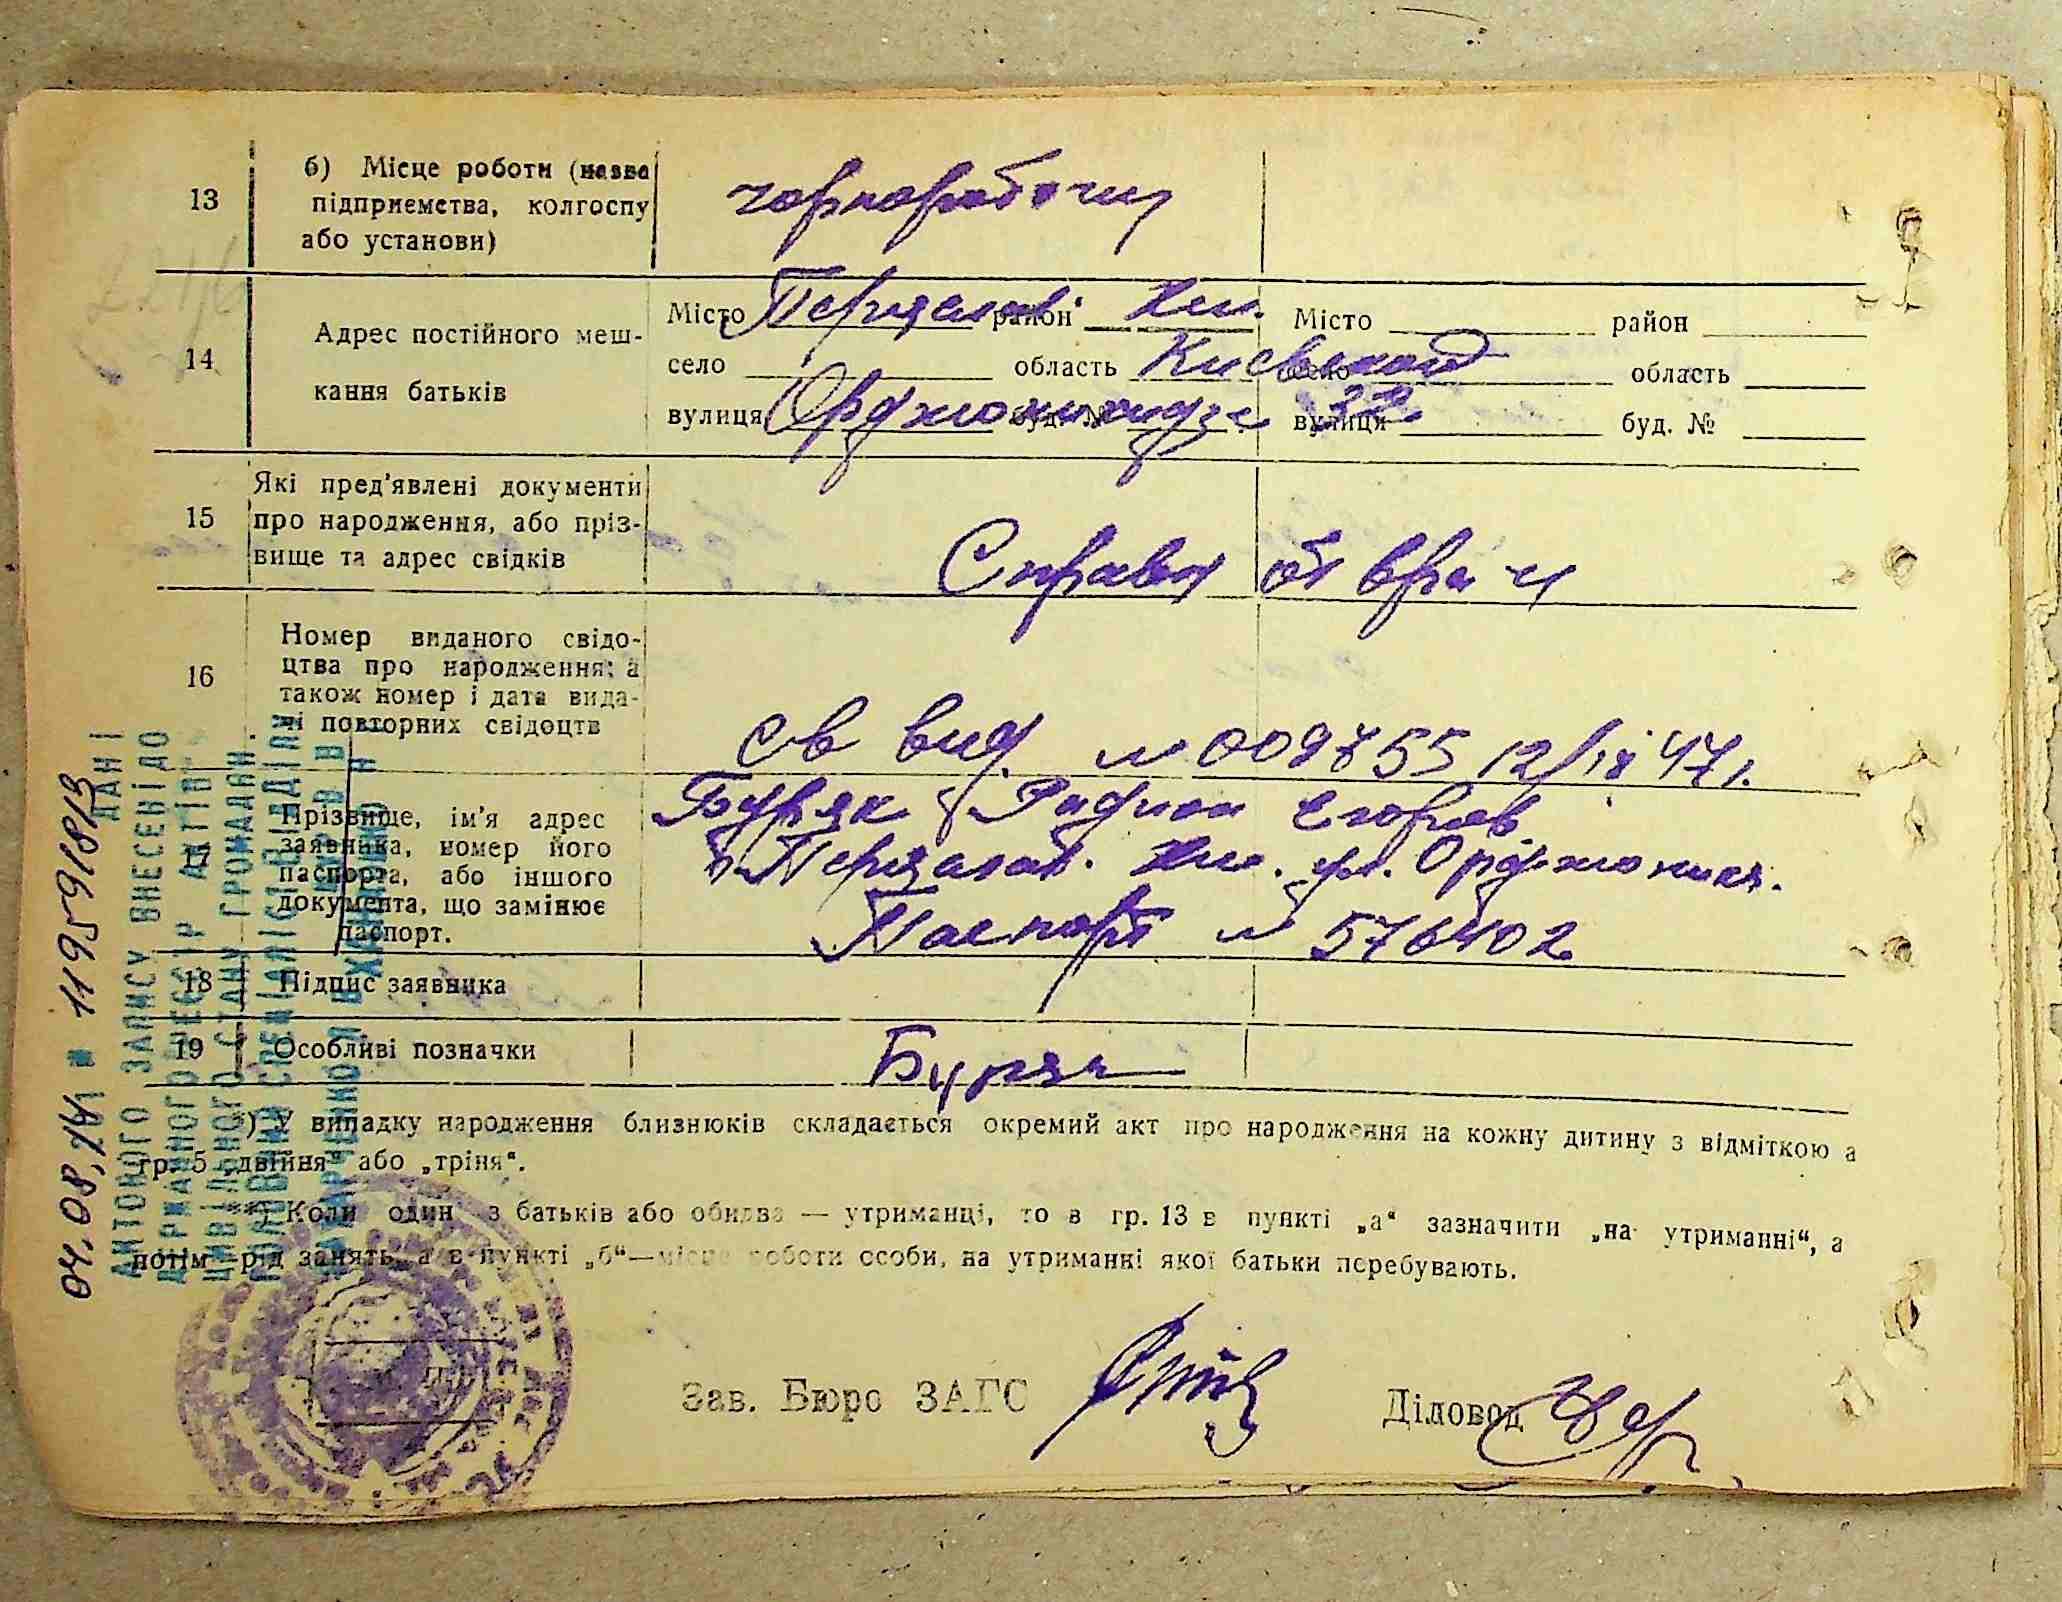 13
б) Місце роботи (назва
підприємства, колгоспу
або установи)
чорнорабочий
14
Адрес постійного меш-
кання батьків
Місто Переяслав район Хм.
село область Киевской
вулиця Орджоникидзе буд. № 32
Місто район
село область
вулиця буд. №
15
Які пред'явлені документи
про народження, або пріз-
вище та адрес свідків
Справка от врача
16
Номер виданого свідо-
цтва про народження; а
також номер і дата вида-
чі повторних свідоцтв
Св вид № 009755 12/ 47 г.
17
Прізвище, ім'я адрес
заявника, номер його
паспорта, або іншого
документа, що замінює
паспорт.
Буряк Радион Егоров
г. Переяслав. Хм. ул. Орджоники.
Паспорт № 576402
18
Підпис заявника
19
Особливі позначки
Буряк
*) У випадку народження близнюків складається окремий акт про народження на кожну дитину з відміткою а
гр. 5 „двійня“ або „тріня“.
**) Коли один з батьків або обидва — утриманці, то в гр. 13 в пункті „а“ зазначити „на утриманні“, а
потім рід занять, а в пункті „б“—місце роботи особи, на утриманні якої батьки перебувають.
Зав. Бюро ЗАГС
Діловод
04.08.
11959181
ДАНІ
АКТОВОГО ЗАПИСУ ВНЕСЕНІ ДО
ДЕРЖАВНОГО РЕЄСТР АКТІВ
ЦИВІЛЬНОГО СТАНУ ГРОМАДЯН
ГОЛОВНИЙ СПЕЦІАЛІСТ ВІДДІЛУ